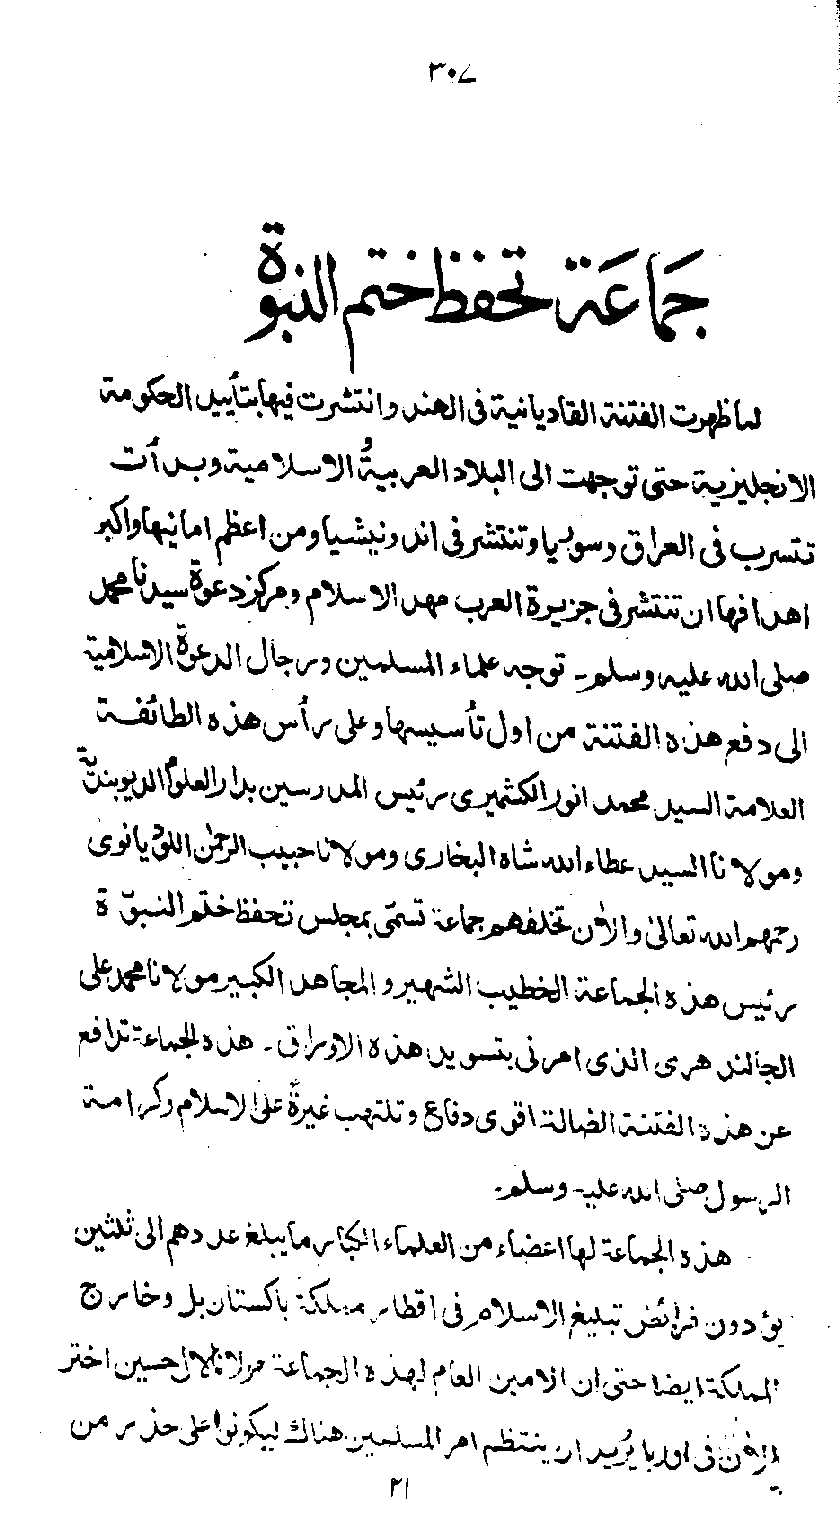 ٣٠٧
جماعة تحفظ ختم النبوة
لما ظهرت الفتنة القاديانية فى الهند وانتشرت فيها بتأييد الحكومة
الانجليزية حتى توجهت الى البلاد العربية الاسلامية وبدأت
تتسرب فى العراق وسوريا وتنتشر فى اندونيشيا ومن اعظم امانيها واكبر
اهدافها ان تنتشر فى جزيرة العرب مهد الاسلام ومركز دعوة سيدنا محمد
صلى الله عليه وسلم۔ توجه علماء المسلمين ورجال الدعوة الاسلامية
الى دفع هذه الفتنة من اول تأسيسها وعلى رأس هذه الطائفة
العلامة السيد محمد انور الكشميرى رئيس المدرسين بدار العلوم الديوبندية
ومولانا السيد عطاء الله شاه البخارى ومولانا حبيب الرحمٰن اللودیانوى
رحمهم الله تعالىٰ والاٰن تخلفهم جماعة تسمّى بمجلس تحفظ ختم النبوّة
رئيس هذه الجماعة الخطيب الشهير والمجاهد الكبير مولانا محمد على
الجالندهرى الذى امرنى بتسويد هذه الاوراق۔ هذه الجماعة تدافع
عن هذه الفتنة الضالة اقوى دفاع وتلتهب غيرةً على الاسلام وكرامة
الرسول صلى الله عليه وسلم۔
هذه الجماعة لها اعضاء من العلماء الكبار ما يبلغ عددهم الى ثلثين
يؤدون فرائض تبليغ الاسلام فى اقطار مملكة باكستان بل وخارج
المملكة ايضا حتى ان الامين العام لهذه الجماعة مولانا لال حسين اختر
الاٰن فى اوربا يُريد ان ينتظم امر المسلمين هناك ليكونوا على حذر من
٢١